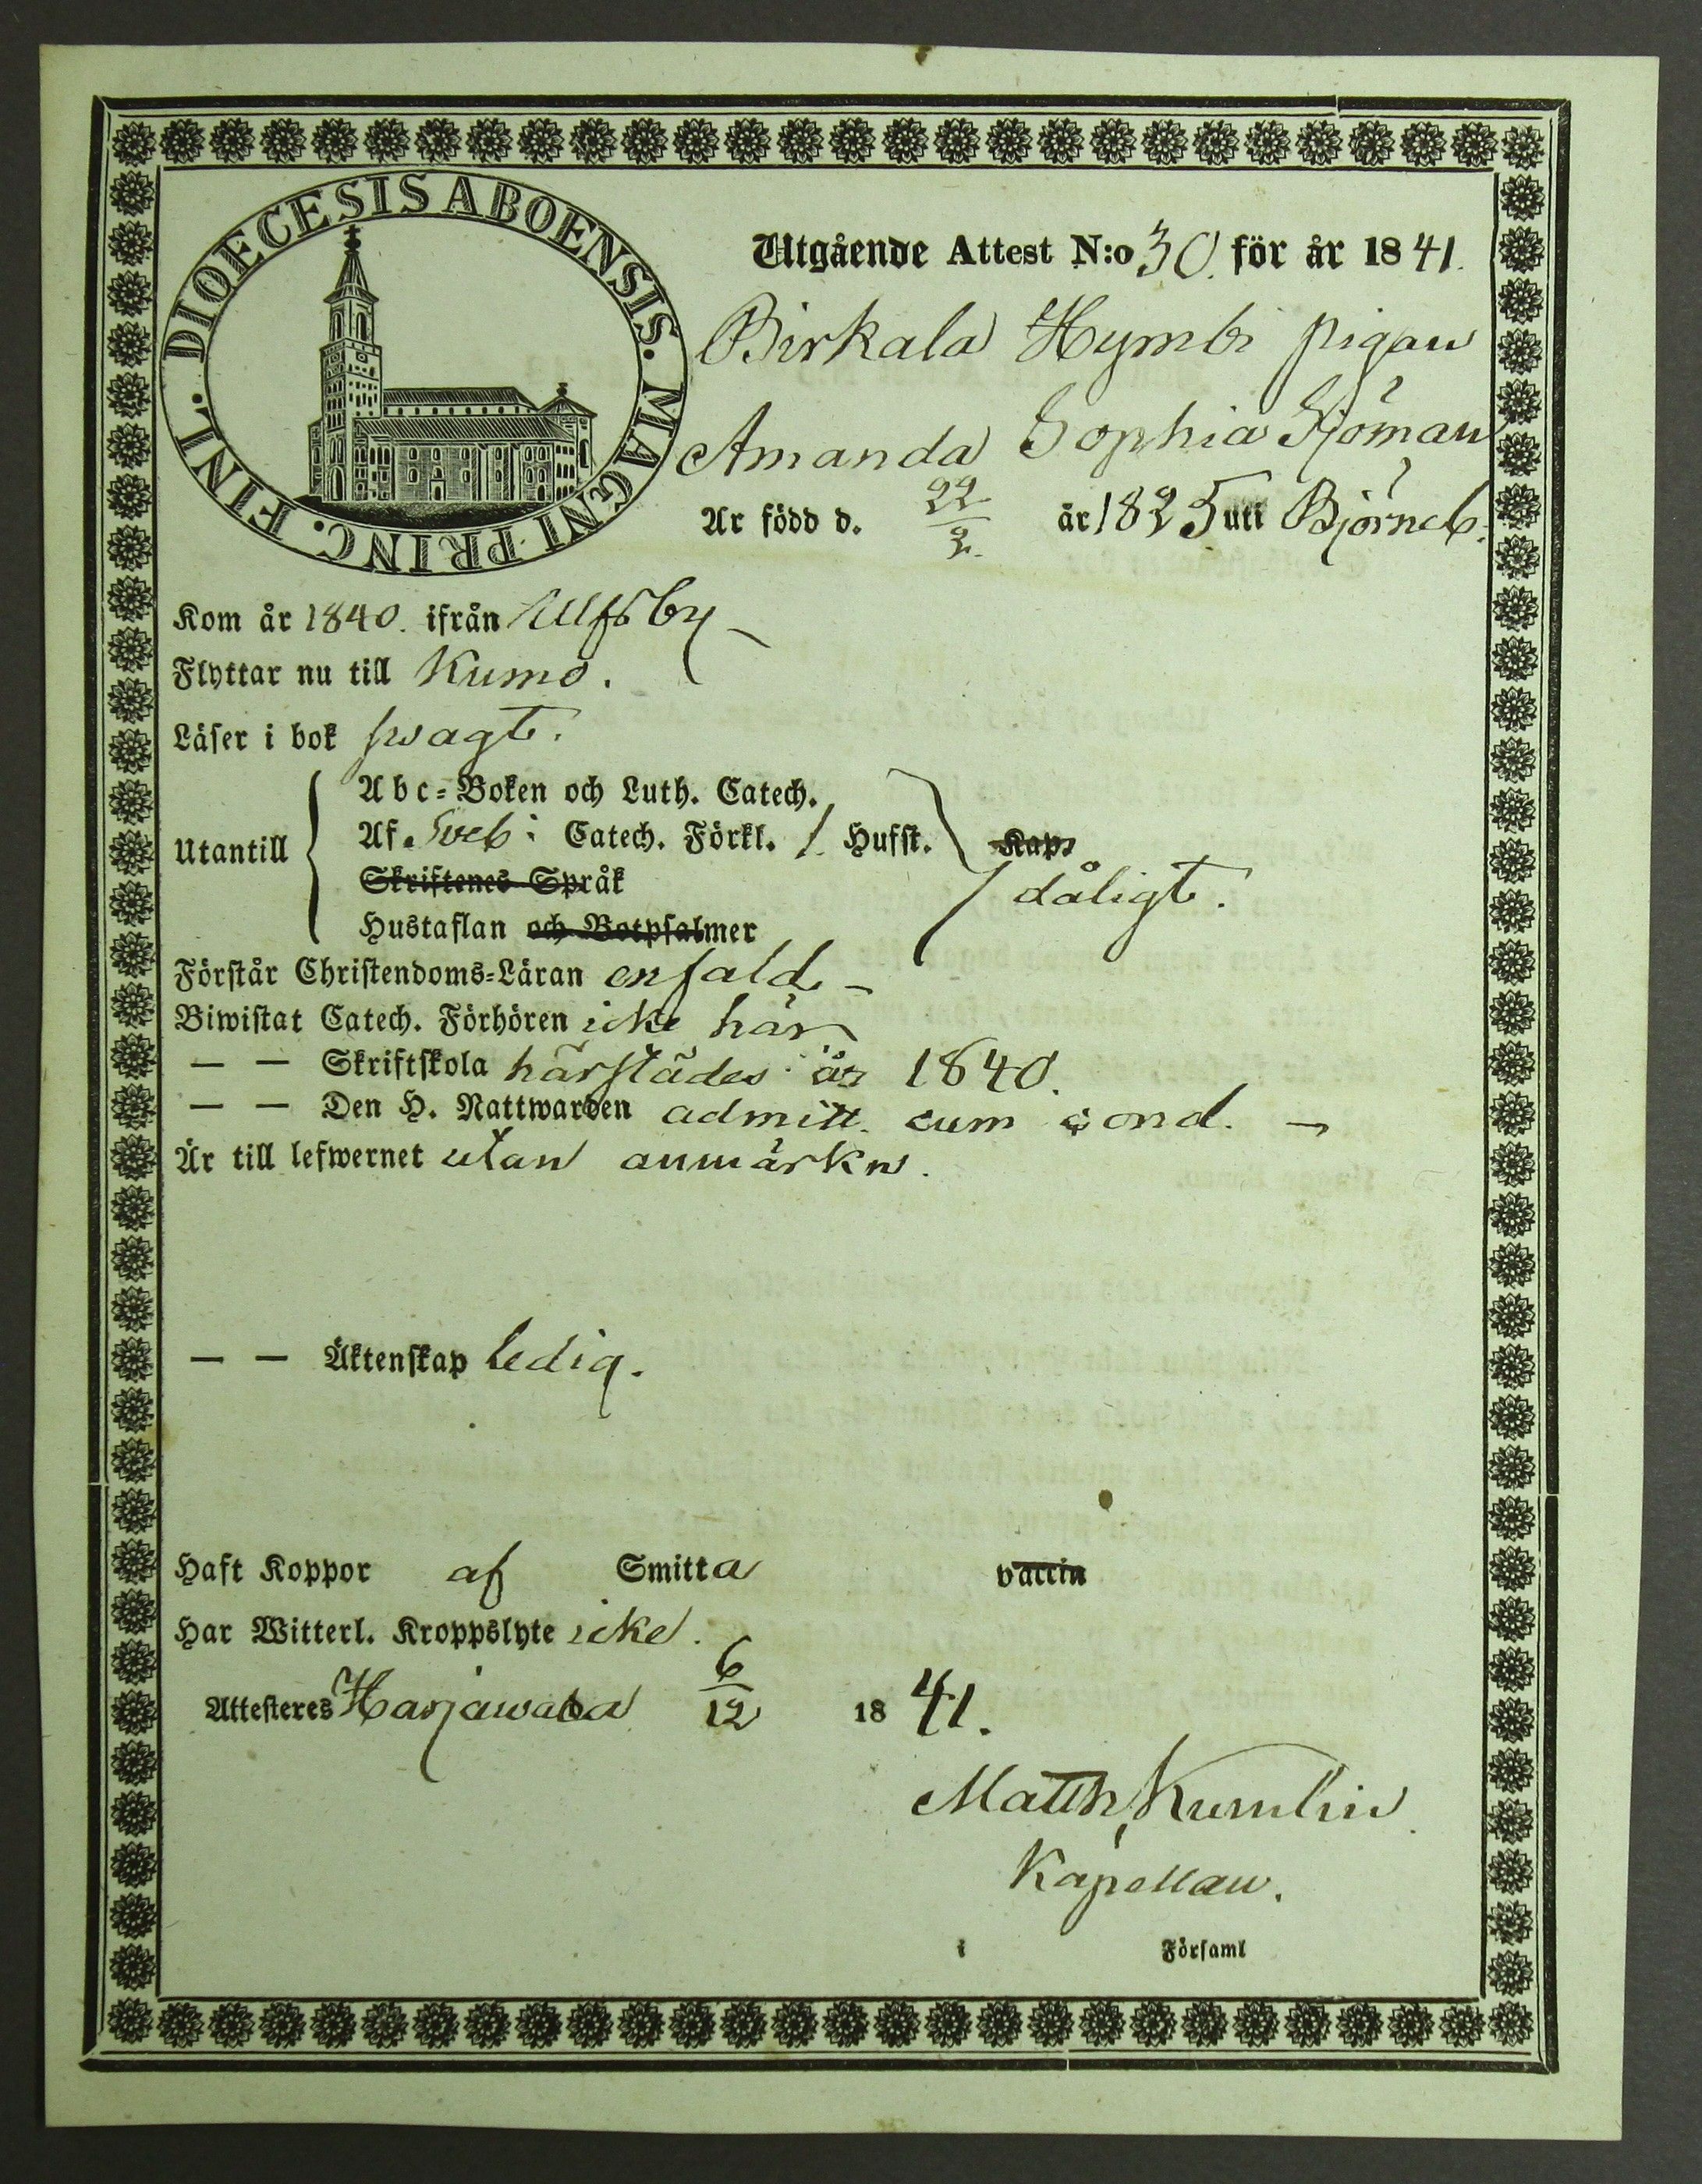 DIOECESIS ABOENSIS. MAGNI PRINC. FINL.
Utgående Attest N:o 30. för år 1841.
Birkala Hymbi pigan
Amanda Sophia Sjöman
Är född d. 22/2. år 1825 uti Björneb.
Kom år 1840. ifrån Ulfsby
Flyttar nu till Kumo.
Läser i bok swagt.
Abc-Boken och Luth. Catech.
Utantill Af Sveb: Catech. Förkl. 1. Hufst. Kap.
Skriftenes Språk dåligt.
Hustaflan och Botpsalmer
Förstår Christendoms-Läran enfald
Biwistat Catech. Förhören icke här
— — Skriftskola härstädes år 1840.
— — Den H. Nattwarden admitt. cum cond. —
Är till lefwernet utan anmärkn.
— — Äktenskap ledig.
Haft Koppor af Smitta vaccin
Har Witterl. Kroppslyte icke.
Attesteres Harjawala 6/12 1841.
Matth. Kumlin
Kapellan.
i Församl